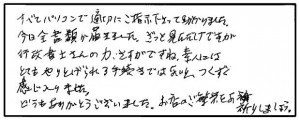 すべてパソコンで適切にご指示下さって助かりました。
今日全書類が届きました。ざっと見ただけですが
行政書士さんの力、さすがですね。素人には
とてもやりとげられる手続きではないと、つくづく
感じ入りました。
どうもありがとうございました。お店のご繁栄をお祈りしましょう。